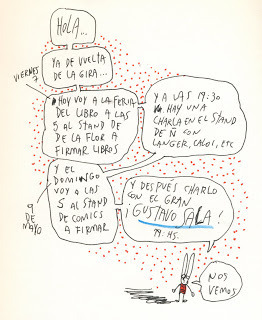 HOLA...
YA DE VUELTA
DE LA GIRA...
VIERNES
7
HOY VOY A LA FERIA
DEL LIBRO A LAS
5 AL STAND DE
DE LA FLOR A
FIRMAR LIBROS
Y A LAS 19:30
HAY UNA
CHARLA EN EL STAND
DE Ñ CON
LANGER, CALOI, ETC
9
DE
MAYO
Y EL
DOMINGO
VOY A LAS
5 AL STAND
DE COMICS
A FIRMAR
Y DESPUÉS CHARLO
CON EL GRAN
¡GUSTAVO SALA!
19 HS.
NOS
VEMOS